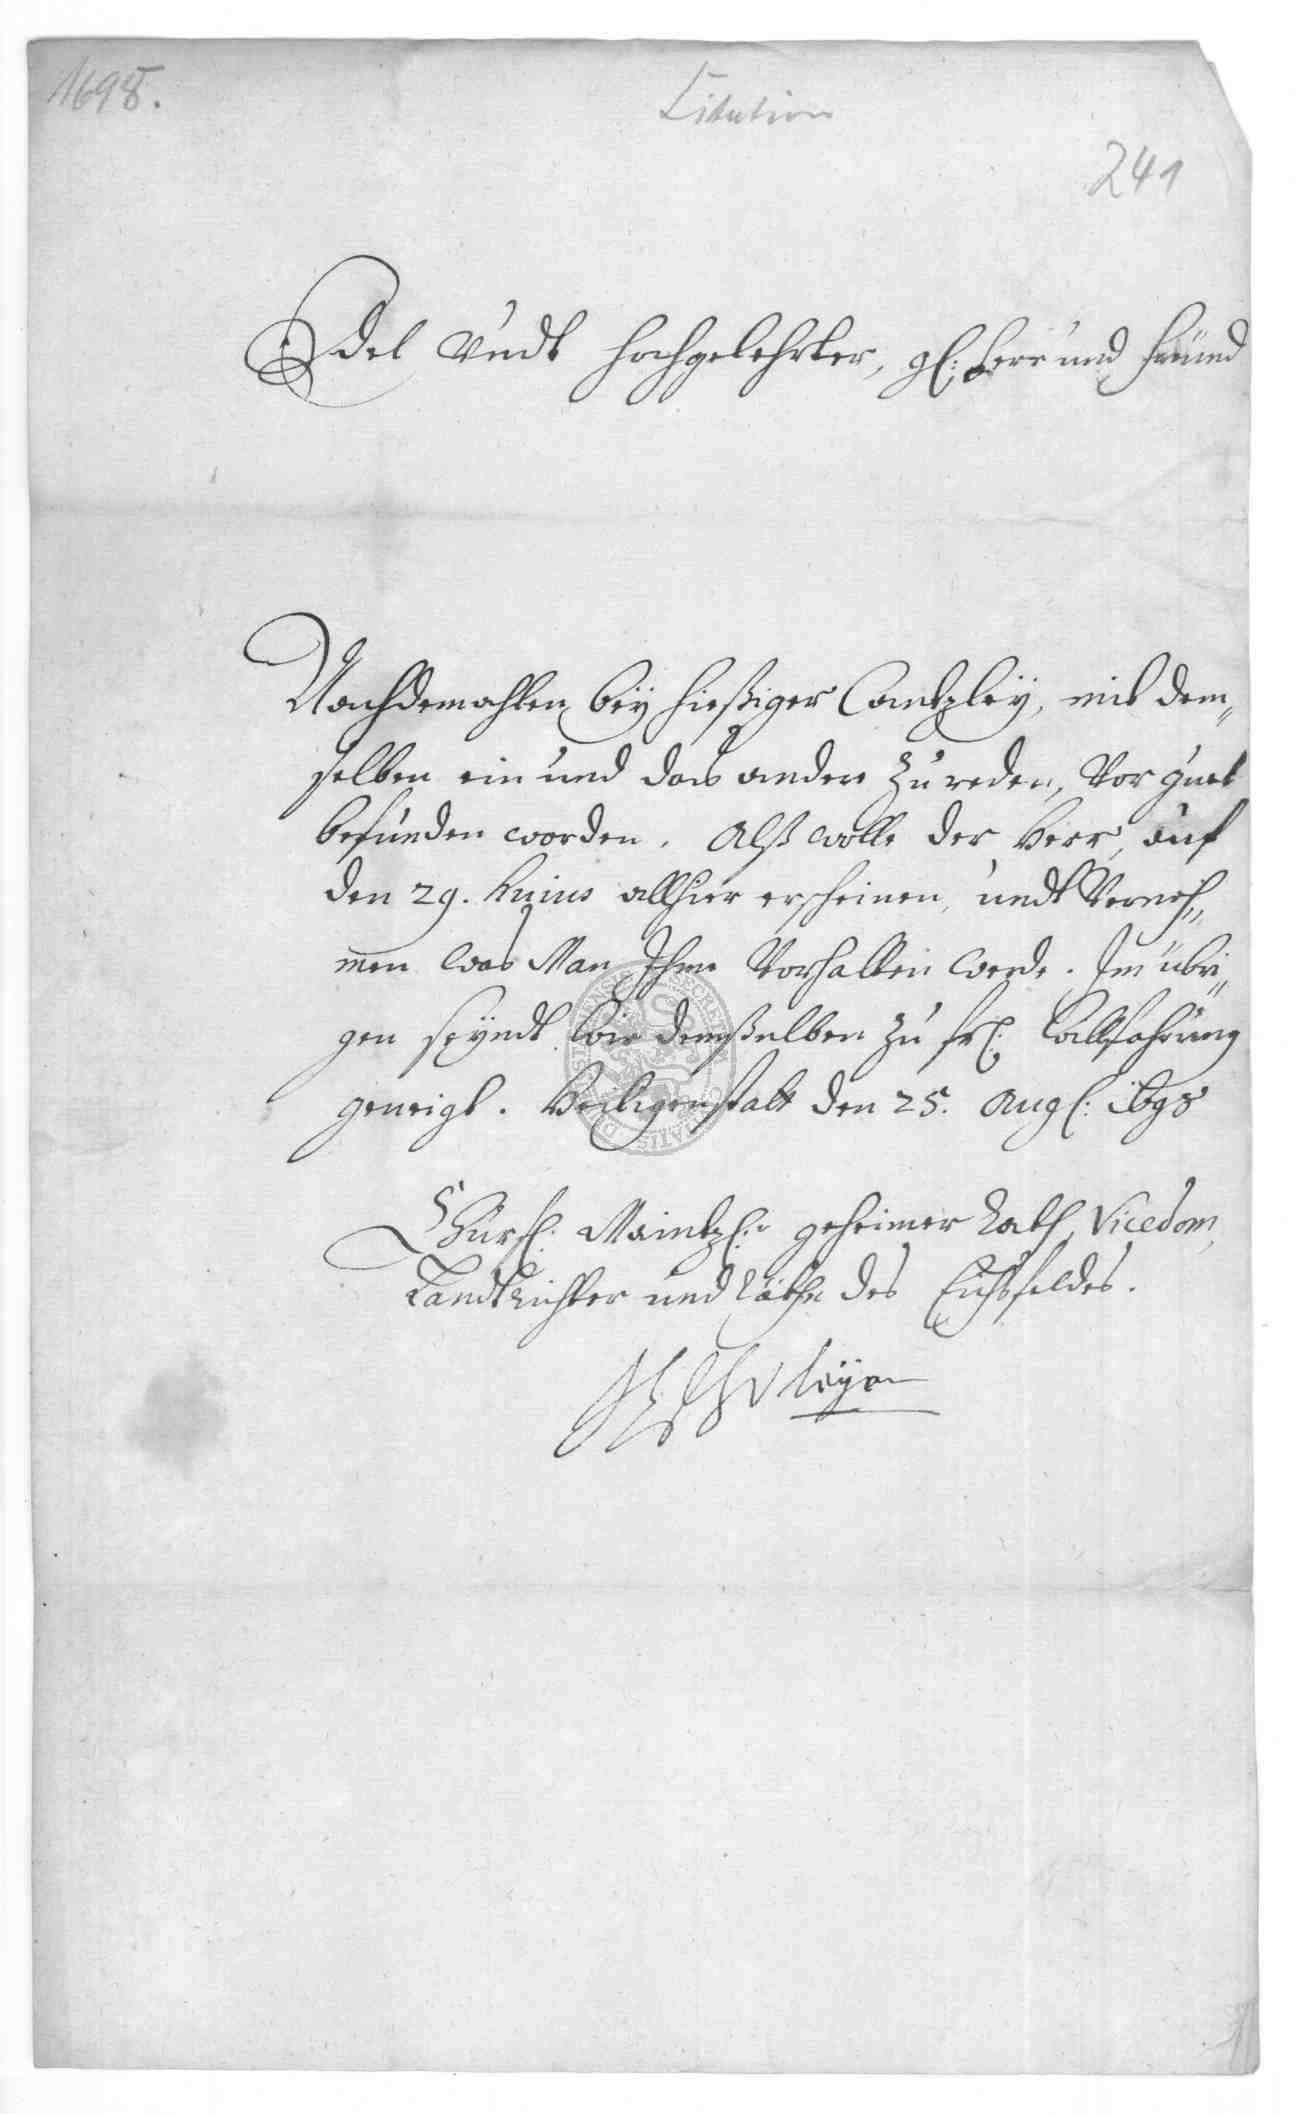 1698.
Citation
241
Edel Undt hochgelehrter, gl: herr und freünd
Nachdemahlen bëy hießiger Cantzleÿ, mit dem„
selben ein und das andere zu reden, vor guet
befunden worden. Alß wolle der Herr, auf
den 29. huius allhier erscheinen, undt verneh„
men was Man Ihme vorhalten werde. Im übri„
gen seyndt wir demßelben zu frl: willfahrung
geneigt. Heiligenstatt den 25. Aug: 1698
Churfl: Maintzl: geheimer Rath, Vicedom,
Landtrichter und Räthe des Eichsfeldes.